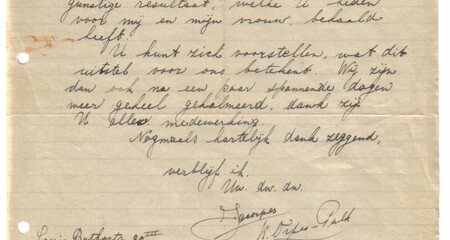 gunstige resultaat, welke U heden
voor mij en mijn vrouw, behaald
heeft.
U kunt zich voorstellen, wat dit
uitstel voor ons betekent. Wij zijn
dan ook na een paar spannende dagen
weer geheel gekalmeerd, dank zij
U aller medewerking.
Nogmaals hartelijk dank zeggend,
verblijf ik.
Uw. dw. dn.